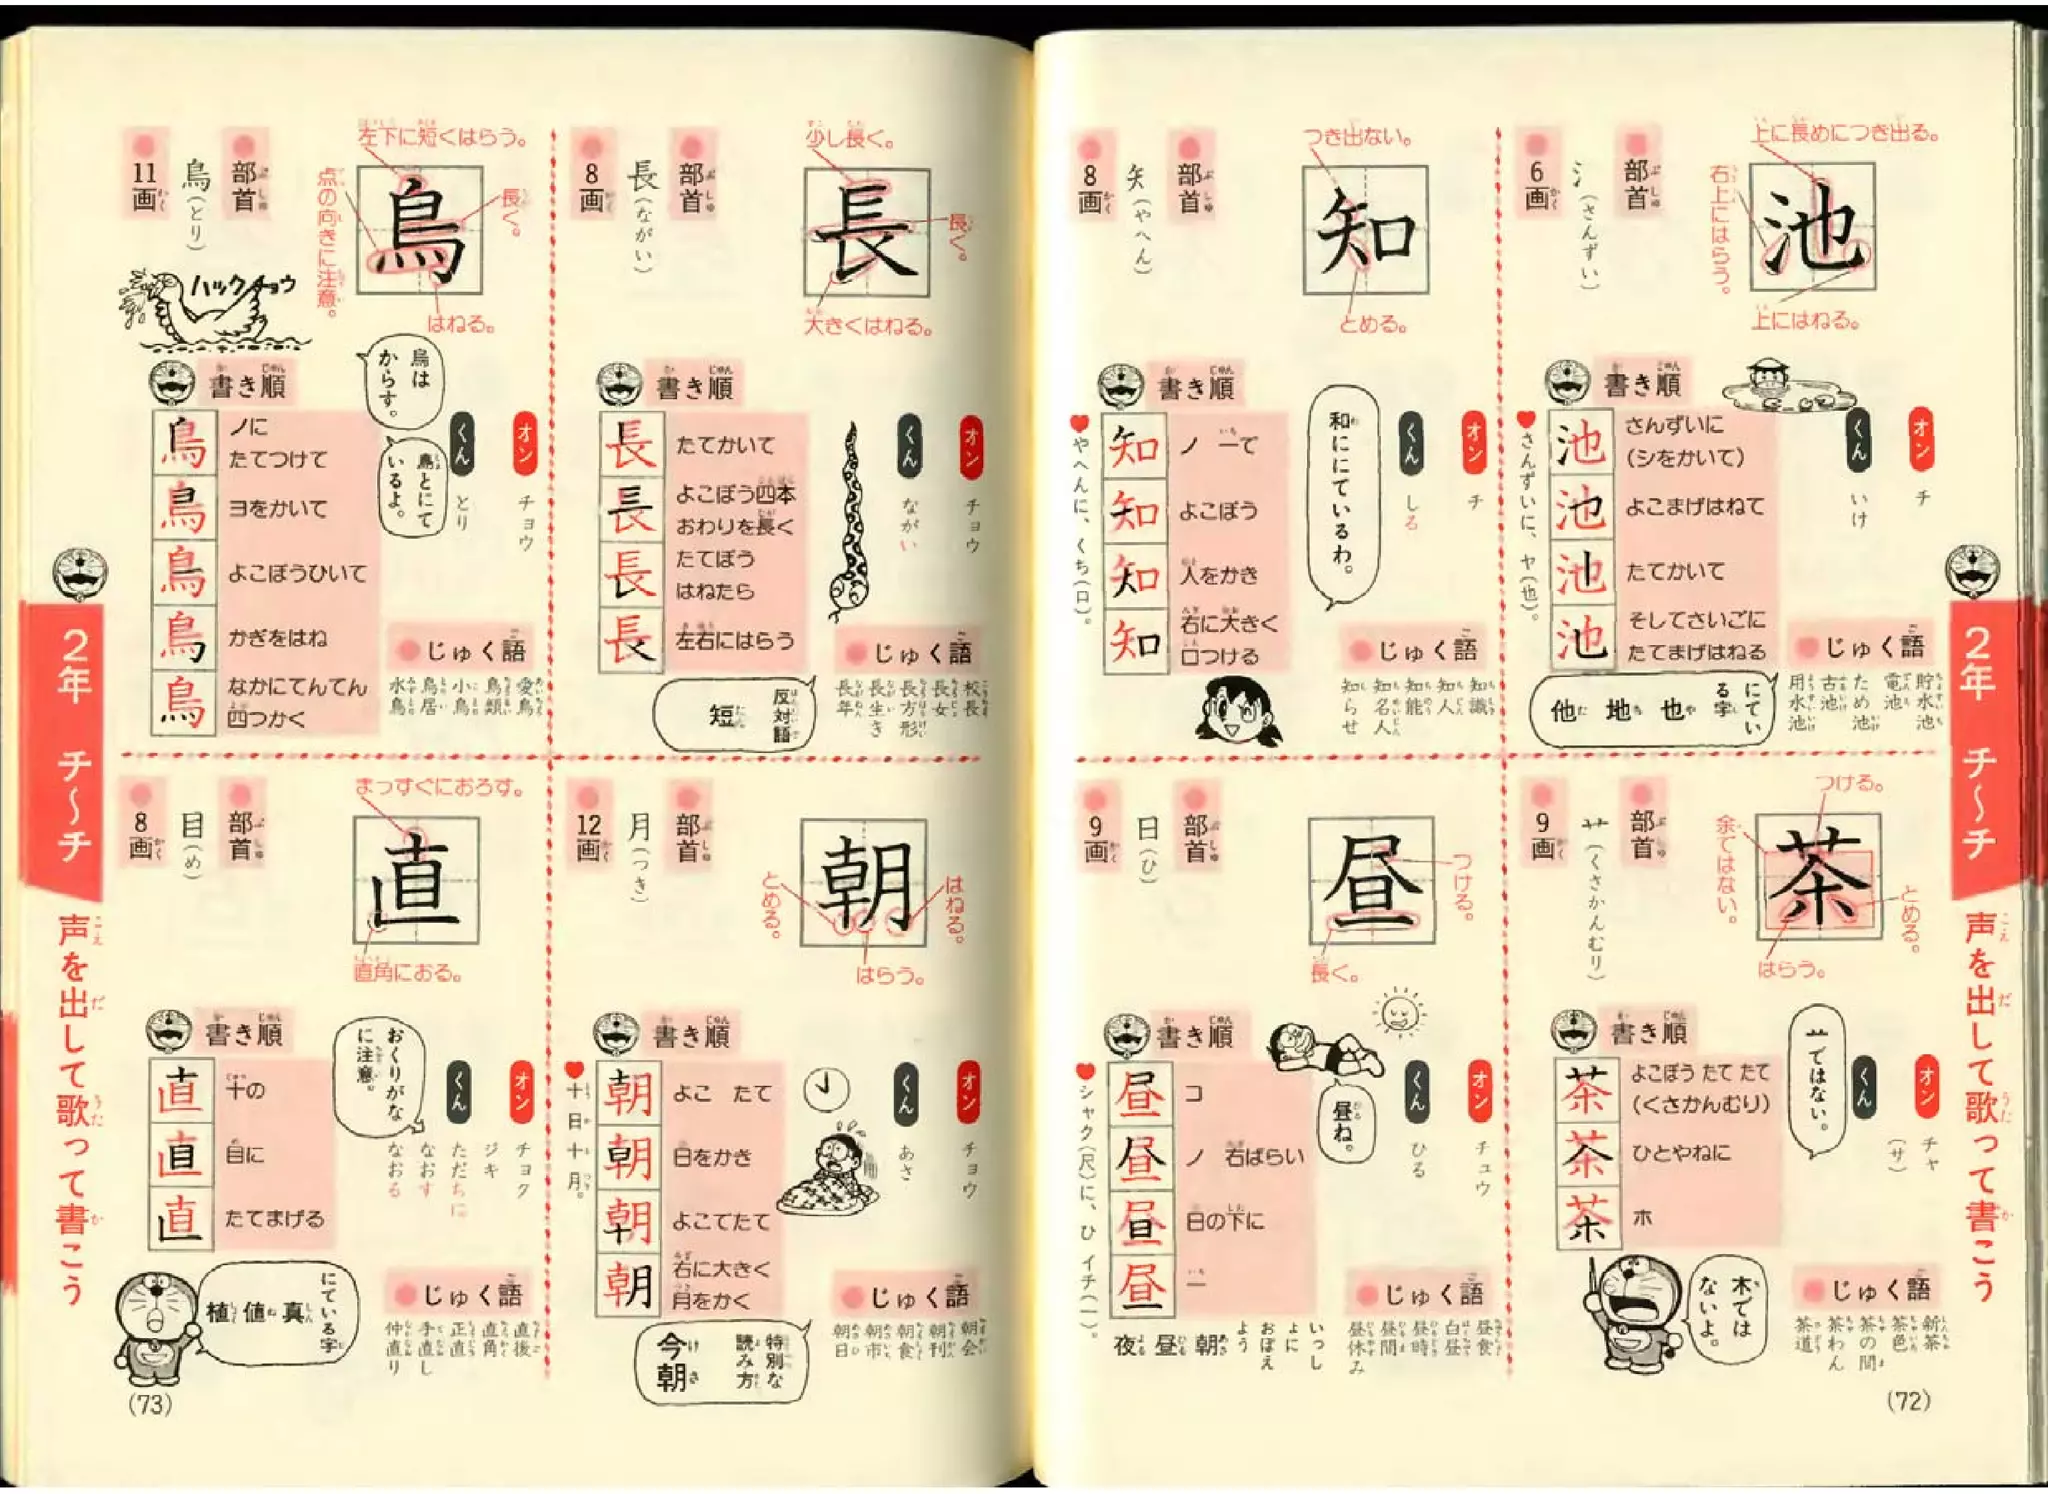 2年 チ〜チ
声を出して歌って書こう
(72)
池
上に長めにつき出る。
右上にはらう。
上にはねる。
部首
氵(さんずい)
6画
オン
チ
くん
いけ
書き順
さんずいに
(シをかいて)
よこまげはねて
たてかいて
そしてさいごに
たてまげはねる
さんずいに、ヤ(也)。
じゅく語
貯水池
電池
ため池
古池
用水池
にている字
也 地 他
知
つき出ない。
とめる。
部首
矢(やへん)
8画
オン
チ
くん
しる
和ににているわ。
書き順
ノ 一て
よこぼう
人をかき
右に大きく
口つける
やへんに、くち(口)。
じゅく語
知識
知人
知能
知名人
知らせ
茶
つける。
余ではない。
とめる。
はらう。
部首
艹(くさかんむり)
9画
オン
チャ
(サ)
くん
亠ではない。
書き順
よこぼう たて たて
(くさかんむり)
ひとやねに
ホ
じゅく語
新茶
茶色
茶の間
茶わん
茶道
木ではないよ。
昼
つける。
長く。
部首
日(ひ)
9画
オン
チュウ
くん
ひる
昼ね。
書き順
コ
ノ 右ばらい
日の下に
一
シャク(尺)に、ひ イチ(一)。
じゅく語
昼食
白昼
昼時
昼間
昼休み
いっしょにおぼえよう
朝 昼 夜
長
少し長く。
長く。
大きくはねる。
部首
長(ながい)
8画
オン
チョウ
くん
ながい
書き順
たてかいて
よこぼう四本
おわりを長く
たてぼう
はねたら
左右にはらう
じゅく語
校長
長女
長方形
長生き
長年
反対語
短
鳥
左下に短くはらう。
長く。
点の向きに注意。
はねる。
部首
鳥(とり)
11画
ハックチョウ
オン
チョウ
くん
とり
烏はからす。
島とにているよ。
書き順
ノに
たてつけて
ヨをかいて
よこぼうひいて
かぎをはね
なかにてんてん
四つかく
じゅく語
愛鳥
鳥類
小鳥
鳥居
水鳥
朝
はねる。
とめる。
はらう。
部首
月(つき)
12画
オン
チョウ
くん
あさ
書き順
よこ たて
日をかき
よこてたて
右に大きく
月をかく
十日十月。
じゅく語
朝会
朝刊
朝食
朝市
朝日
特別な読み方
今朝
直
まっすぐにおろす。
直角におる。
部首
目(め)
8画
オン
チョク
ジキ
くん
ただちに
なおす
なおる
おくりがなに注意。
書き順
十の
目に
たてまげる
じゅく語
直後
直角
正直
手直し
仲直り
にている字
真 値 植
2年 チ〜チ
声を出して歌って書こう
(73)